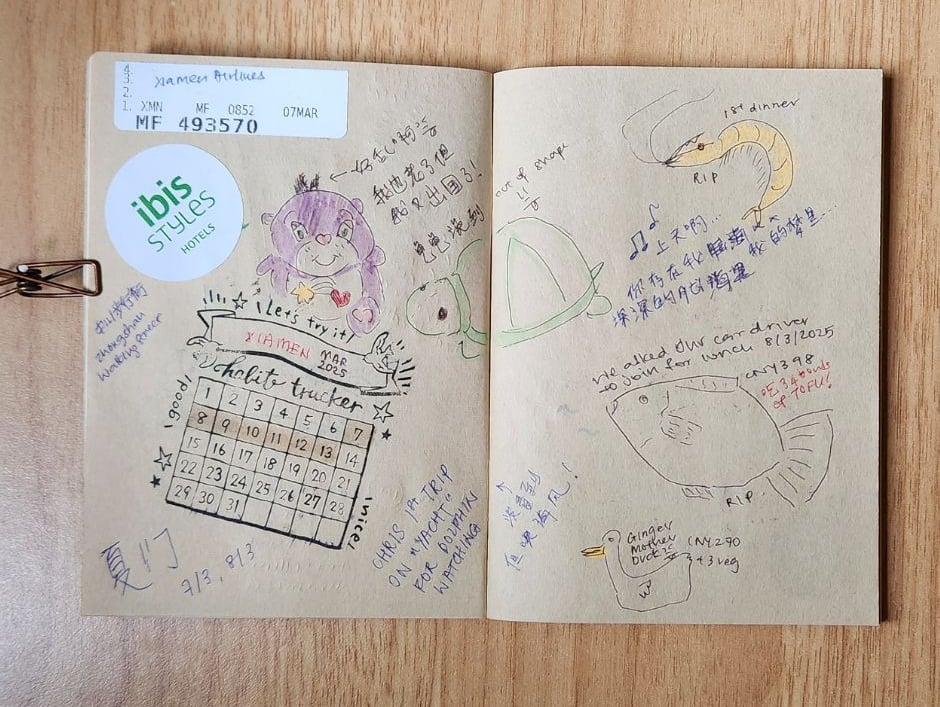 4.
3.
2.
1.
Xiamen Airlines
XMN MF 0852 07MAR
MF 493570
ibis
STYLES
HOTELS
我也老了但
我又出国了!
Zhongshan
Let's try it!
XIAMEN MAR
2025
habits tracker
good!
1 2 3 4 5 6 7
8 9 10 11 12 13 14
15 16 17 18 19 20 21
22 23 24 25 26 27 28
29 30 31
nice!
夏门
7/3, 8/3
CHRIS 1st TRIP
ON "YACHT"
FOR DOLPHIN
WATCHING
out of shape
!!
1st dinner
RIP
上天啊...
你存在我
深深的脑海里
我的梦里
We asked our car driver
to join for lunch 8/3/2025
CNY398
3 bowls
of TOFU!
RIP.
没看到
但吹海风!
Ginger
Mother
Duck
CNY290
+3 veg